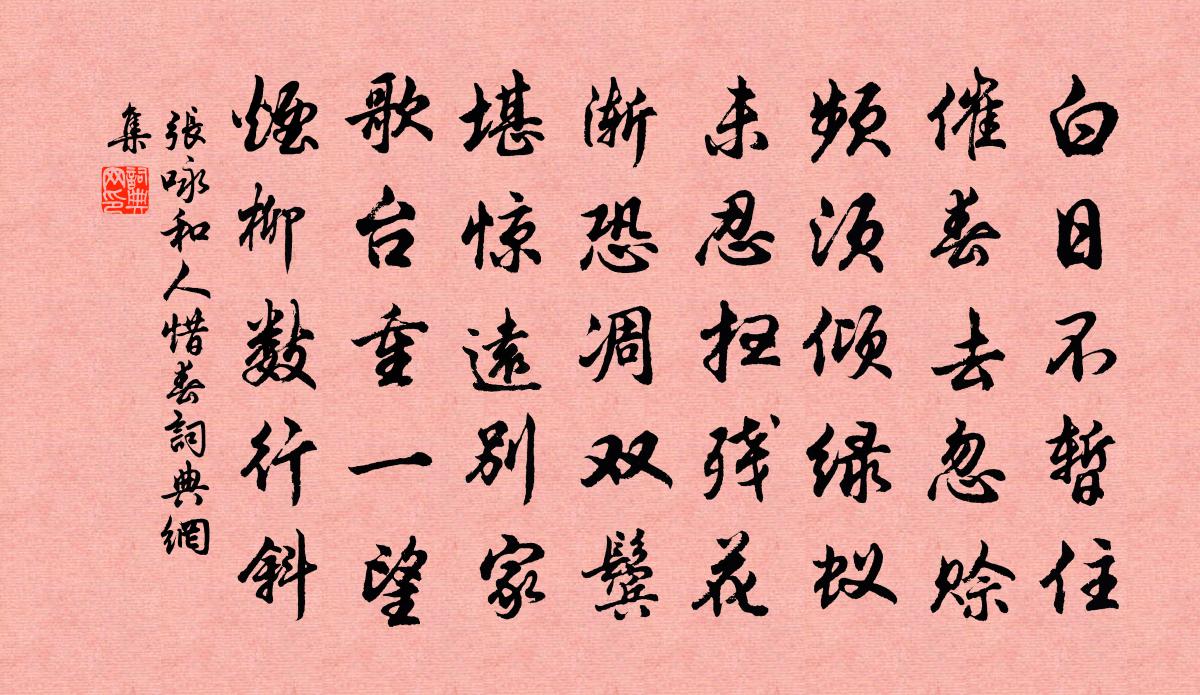 白日不暂住
催春去忽赊
频须倾绿蚁
未忍扫残花
渐恐凋双鬓
堪惊远别家
歌台重一望
烟柳数行斜
張咏和人惜春詞典網
集
詞典网印